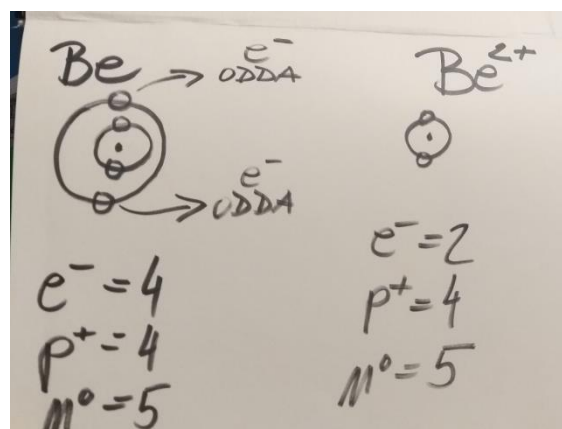 Be
e⁻
ODDA
e⁻
ODDA
e⁻ = 4
p⁺ = 4
n⁰ = 5
Be²⁺
e⁻ = 2
p⁺ = 4
n⁰ = 5